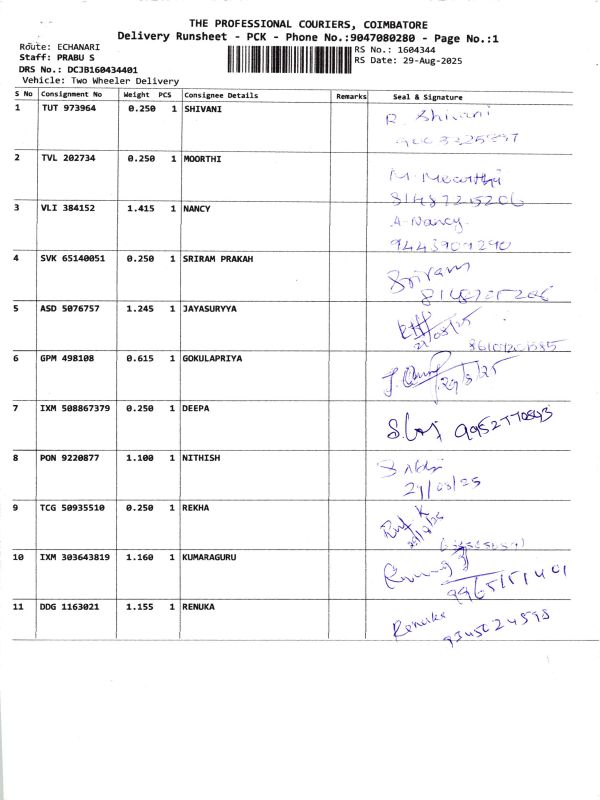 THE PROFESSIONAL COURIERS, COIMBATORE
Delivery Runsheet - PCK - Phone No.:9047080280 - Page No.:1
Route: ECHANARI
Staff: PRABU S
DRS No.: DCJB160434401
Vehicle: Two Wheeler Delivery
RS No.: 1604344
RS Date: 29-Aug-2025
S No Consignment No Weight PCS Consignee Details Remarks Seal & Signature
1 TUT 973964 0.250 1 SHIVANI R. Shivani
2 TVL 202734 0.250 1 MOORTHI M. Moorthi
8148725206
3 VLI 384152 1.415 1 NANCY A. Nancy
9443909290
4 SVK 65140051 0.250 1 SRIRAM PRAKAH Sriram
5 ASD 5076757 1.245 1 JAYASURYYA
6 GPM 498108 0.615 1 GOKULAPRIYA 29/8/25
7 IXM 508867379 0.250 1 DEEPA 9952770843
8 PON 9220877 1.100 1 NITHISH
29/08/25
9 TCG 50935510 0.250 1 REKHA
10 IXM 303643819 1.160 1 KUMARAGURU
9965151401
11 DDG 1163021 1.155 1 RENUKA Renuka 9345024598